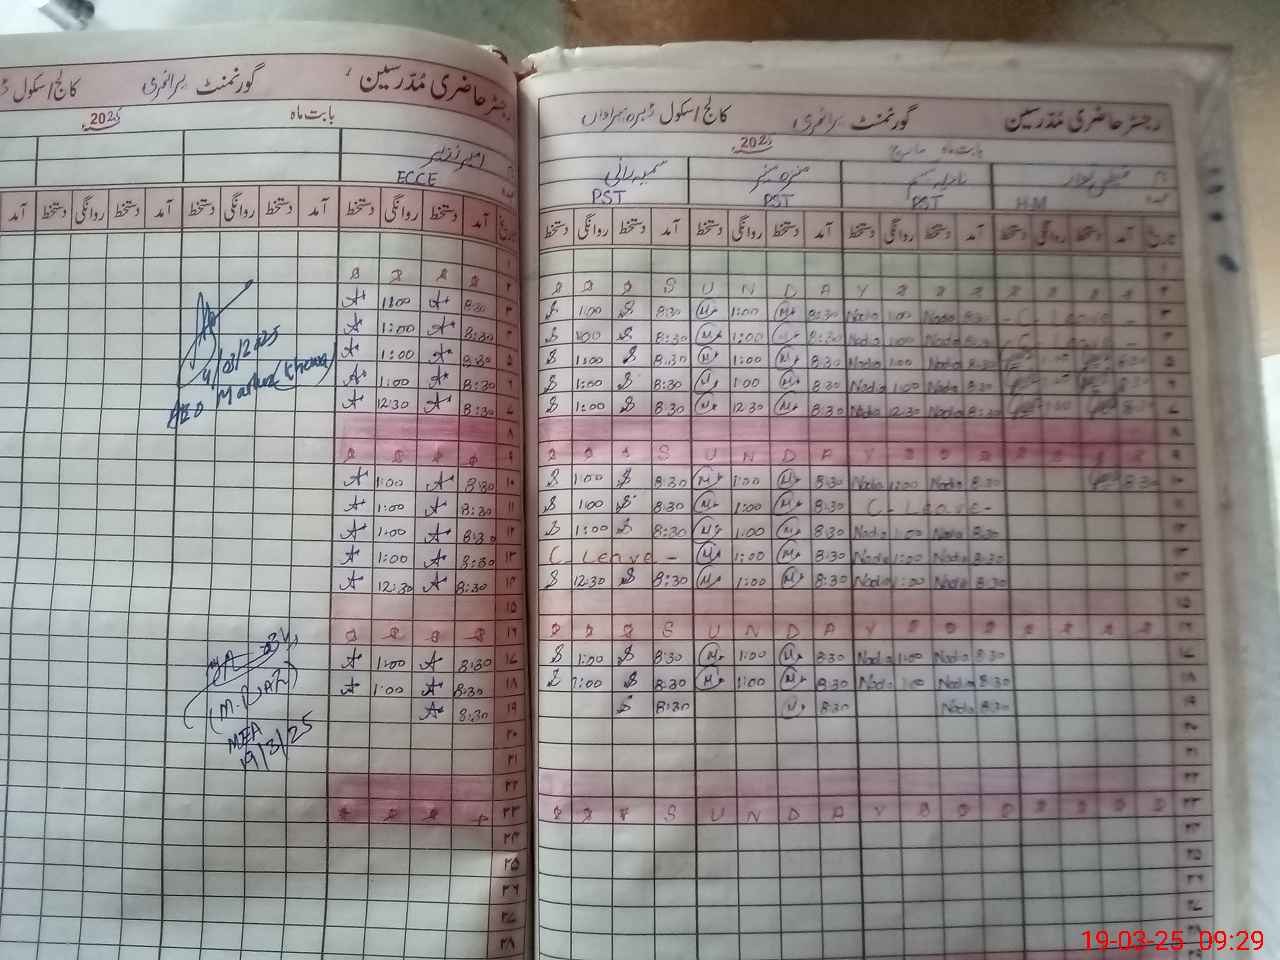 رجسٹر حاضری مُدرسین گورنمنٹ پرائمری کالج/سکول
بابت ماہ 2025
ECCE
تاریخ آمد دستخط روانگی دستخط آمد دستخط روانگی دستخط آمد دستخط روانگی دستخط آمد
۱
۲
۳ 8:30 A+ 1:00 A+
۴ 8:30 A+ 1:00 A+
۵ 8:30 A+ 1:00 A+
۶ 8:30 A+ 1:00 A+
۷ 8:30 A+ 12:30 A+
۸
۹
۱۰ 8:30 A+ 1:00 A+
۱۱ 8:30 A+ 1:00 A+
۱۲ 8:30 A+ 1:00 A+
۱۳ 8:30 A+ 1:00 A+
۱۴ 8:30 A+ 12:30 A+
۱۵
۱۶
۱۷ 8:30 A+ 1:00 A+
۱۸ 8:30 A+ 1:00 A+
۱۹ 8:30 A+
۲۰
۲۱
۲۲
۲۳
۲۴
۲۵
۲۶
۲۷
۲۸
4/03/2025
AEO Markaz
(M. RIAZ)
MEA
19/3/25
رجسٹر حاضری مُدرسین گورنمنٹ پرائمری کالج/سکول
بابت ماہ مارچ 2025
سمیہ رانی
H.M PST PST PST
تاریخ آمد دستخط روانگی دستخط آمد دستخط روانگی دستخط آمد دستخط روانگی دستخط آمد دستخط روانگی دستخط
۱
۲ S U N D A Y
۳ S 1:00 S 8:30 M 1:00 M 8:30 Nadia 1:00 Nadia 8:30 - C - Leave -
۴ S 1:00 S 8:30 M 1:00 M 8:30 Nadia 1:00 Nadia 8:30 - C - Leave -
۵ S 1:00 S 8:30 M 1:00 M 8:30 Nadia 1:00 Nadia 8:30
۶ S 1:00 S 8:30 M 1:00 M 8:30 Nadia 1:00 Nadia 8:30
۷ S 1:00 S 8:30 M 12:30 M 8:30 Nadia 12:30 Nadia 8:30
۸
۹ S U N D A Y
۱۰ S 1:00 S 8:30 M 1:00 M 8:30 Nadia 1:00 Nadia 8:30 8:30
۱۱ S 1:00 S 8:30 M 1:00 M 8:30 C - Leave -
۱۲ S 1:00 S 8:30 M 1:00 M 8:30 Nadia 1:00 Nadia 8:30
۱۳ C - Leave - M 1:00 M 8:30 Nadia 1:00 Nadia 8:30
۱۴ S 12:30 S 8:30 M 1:00 M 8:30 Nadia 1:00 Nadia 8:30
۱۵
۱۶ S U N D A Y
۱۷ S 1:00 S 8:30 M 1:00 M 8:30 Nadia 1:00 Nadia 8:30
۱۸ S 1:00 S 8:30 M 1:00 M 8:30 Nadia 1:00 Nadia 8:30
۱۹ S 8:30 M 8:30 Nadia 8:30
۲۰
۲۱
۲۲
۲۳ S U N D A Y
۲۴
۲۵
۲۶
۲۷
۲۸
۲۹
19-03-25 09:29